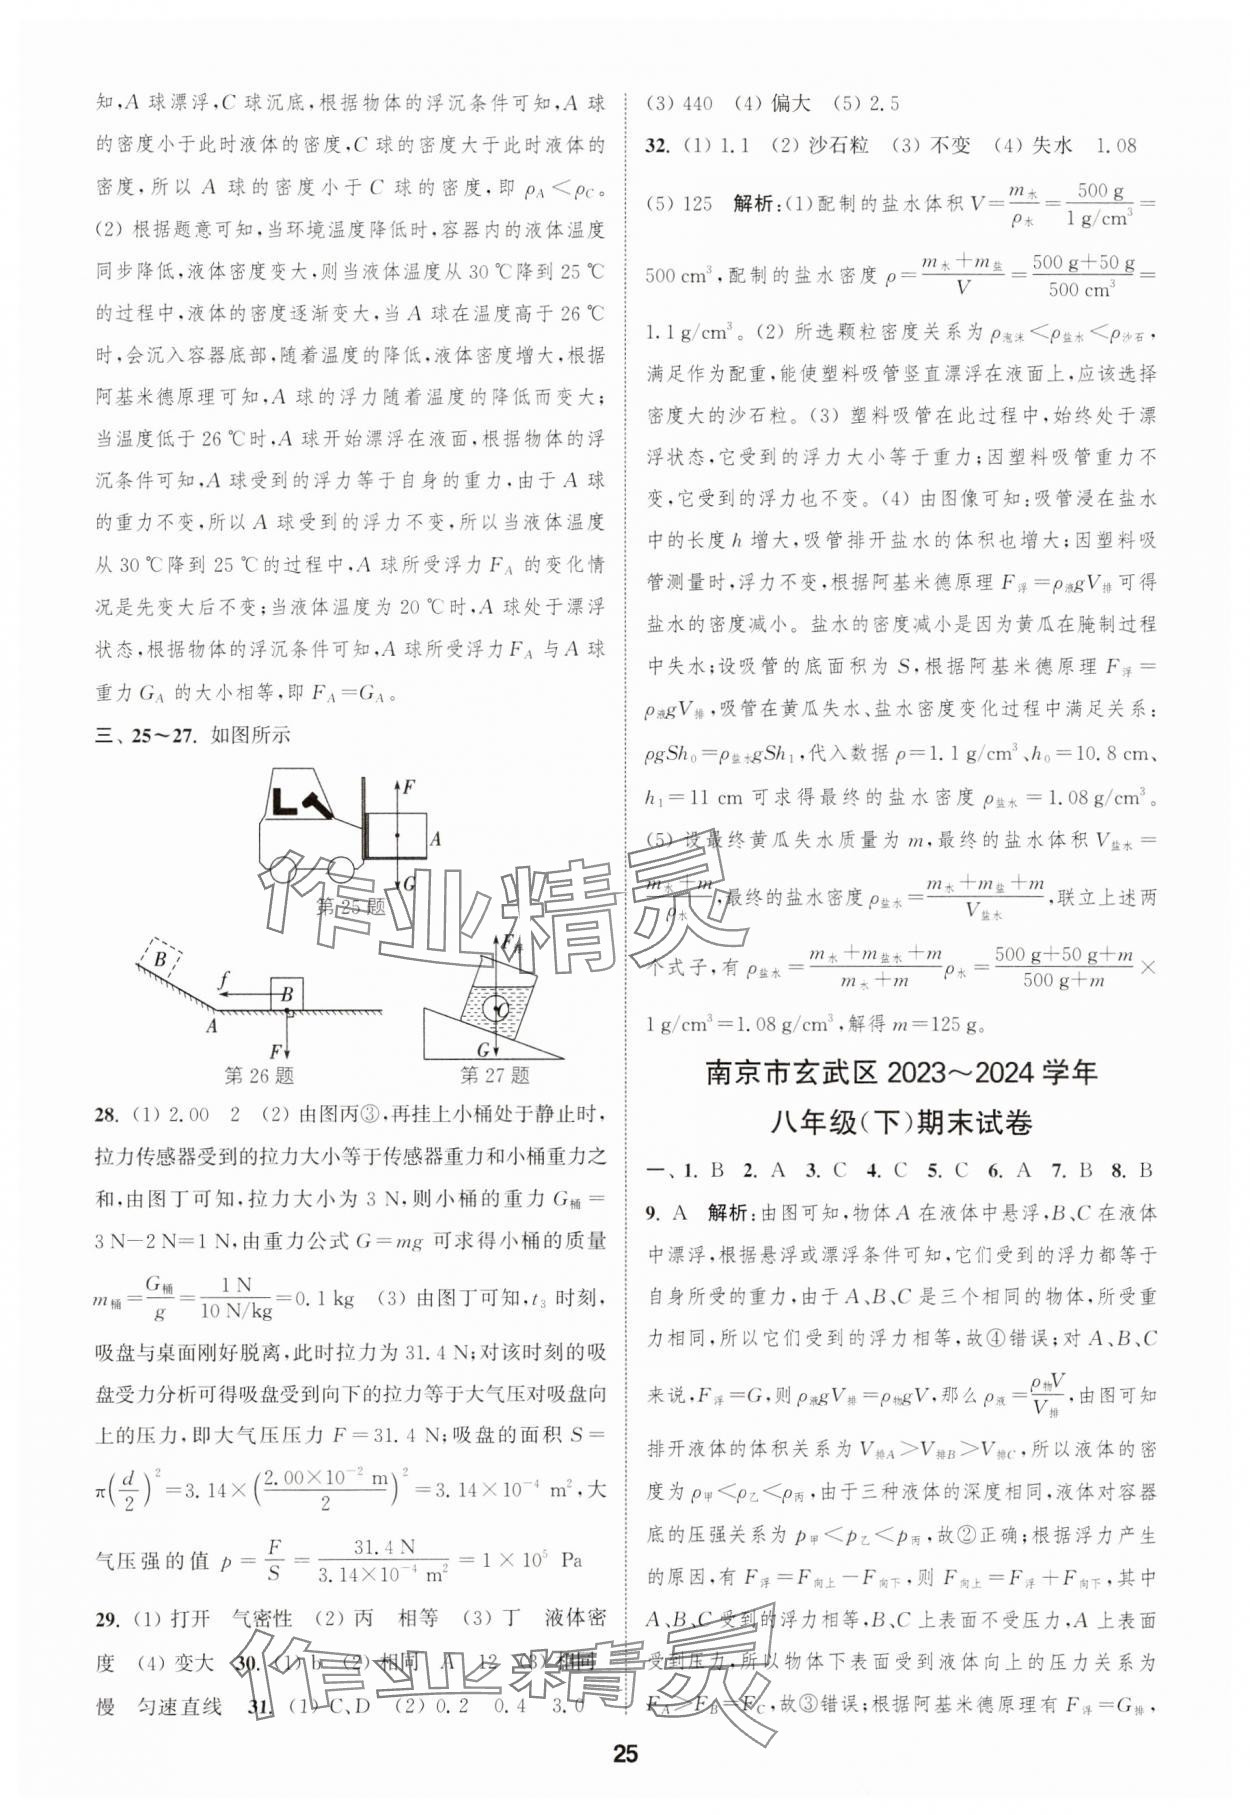 知,A 球漂浮,C 球沉底,根据物体的浮沉条件可知,A 球
的密度小于此时液体的密度,C 球的密度大于此时液体的
密度,所以 A 球的密度小于 C 球的密度,即 ρA＜ρC。
(2) 根据题意可知,当环境温度降低时,容器内的液体温度
同步降低,液体密度变大,则当液体温度从 30 ℃降到 25 ℃
的过程中,液体的密度逐渐变大,当 A 球在温度高于 26 ℃
时,会沉入容器底部,随着温度的降低,液体密度增大,根据
阿基米德原理可知,A 球的浮力随着温度的降低而变大;
当温度低于 26 ℃时,A 球开始漂浮在液面,根据物体的浮
沉条件可知,A 球受到的浮力等于自身的重力,由于 A 球
的重力不变,所以 A 球受到的浮力不变,所以当液体温度
从 30 ℃降到 25 ℃的过程中,A 球所受浮力 FA 的变化情
况是先变大后不变;当液体温度为 20 ℃时,A 球处于漂浮
状态,根据物体的浮沉条件可知,A 球所受浮力 FA 与 A 球
重力 GA 的大小相等,即 FA＝GA。
三、25～27. 如图所示
F
A
G
第 25 题
B
f
B
A
F
第 26 题
F浮
C
G
第 27 题
28. (1) 2.00 2 (2) 由图丙③,再挂上小桶处于静止时,
拉力传感器受到的拉力大小等于传感器重力和小桶重力之
和,由图丁可知,拉力大小为 3 N,则小桶的重力 G桶＝
3 N－2 N＝1 N,由重力公式 G＝mg 可求得小桶的质量
m桶＝G桶/g＝1 N/10 N/kg＝0.1 kg (3) 由图丁可知,t3 时刻,
吸盘与桌面刚好脱离,此时拉力为 31.4 N;对该时刻的吸
盘受力分析可得吸盘受到向下的拉力等于大气压对吸盘向
上的压力,即大气压压力 F＝31.4 N;吸盘的面积 S＝
π(d/2)²＝3.14×(2.00×10⁻² m/2)²＝3.14×10⁻⁴ m²,大
气压强的值 p＝F/S＝31.4 N/3.14×10⁻⁴ m²＝1×10⁵ Pa
29. (1) 打开 气密性 (2) 丙 相等 (3) 丁 液体密
度 (4) 变大 30. (1) b (2) 相同 A 12 (3) 相同
慢 匀速直线 31. (1) C、D (2) 0.2 0.4 3.0
(3) 440 (4) 偏大 (5) 2.5
32. (1) 1.1 (2) 沙石粒 (3) 不变 (4) 失水 1.08
(5) 125 解析:(1)配制的盐水体积 V＝m水/ρ水＝500 g/1 g/cm³＝
500 cm³,配制的盐水密度 ρ＝m水＋m盐/V＝500 g＋50 g/500 cm³＝
1.1 g/cm³。(2) 所选颗粒密度关系为 ρ泡沫＜ρ盐水＜ρ沙石,
满足作为配重,能使塑料吸管竖直漂浮在液面上,应该选择
密度大的沙石粒。(3) 塑料吸管在此过程中,始终处于漂
浮状态,它受到的浮力大小等于重力;因塑料吸管重力不
变,它受到的浮力也不变。(4) 由图像可知:吸管浸在盐水
中的长度 h 增大,吸管排开盐水的体积也增大;因塑料吸
管测量时,浮力不变,根据阿基米德原理 F浮＝ρ液gV排可得
盐水的密度减小。盐水的密度减小是因为黄瓜在腌制过程
中失水;设吸管的底面积为 S,根据阿基米德原理 F浮＝
ρ液gV排,吸管在黄瓜失水、盐水密度变化过程中满足关系:
ρgSh0＝ρ盐水gSh1,代入数据 ρ＝1.1 g/cm³、h0＝10.8 cm、
h1＝11 cm 可求得最终的盐水密度 ρ盐水＝1.08 g/cm³。
(5) 设最终黄瓜失水质量为 m,最终的盐水体积 V盐水＝
m水＋m/ρ水,最终的盐水密度 ρ盐水＝m水＋m盐＋m/V盐水,联立上述两
个式子,有 ρ盐水＝m水＋m盐水＋m/m水＋m ρ水＝500 g＋50 g＋m/500 g＋m×
1 g/cm³＝1.08 g/cm³,解得 m＝125 g。
南京市玄武区 2023～2024 学年
八年级(下)期末试卷
一、1. B 2. A 3. C 4. C 5. C 6. A 7. B 8. B
9. A 解析:由图可知,物体 A 在液体中悬浮,B、C 在液体
中漂浮,根据悬浮或漂浮条件可知,它们受到的浮力都等于
自身所受的重力,由于 A、B、C 是三个相同的物体,所受重
力相同,所以它们受到的浮力相等,故④错误;对 A、B、C
来说,F浮＝G,则 ρ液gV排＝ρ物gV,那么 ρ液＝ρ物V/V排,由图可知
排开液体的体积关系为 V排A＞V排B＞V排C,所以液体的密
度为 ρ甲＜ρ乙＜ρ丙,由于三种液体的深度相同,液体对容器
底的压强关系为 p甲＜p乙＜p丙,故②正确;根据浮力产生
的原因,有 F浮＝F向上－F向下,则 F向上＝F浮＋F向下,其中
A、B、C 受到的浮力相等,B、C 上表面不受压力,A 上表面
受到压力,所以物体下表面受到液体向上的压力关系为
FA＞FB＝FC,故③错误;根据阿基米德原理有 F浮＝G排,
25
作业精灵
作业精灵